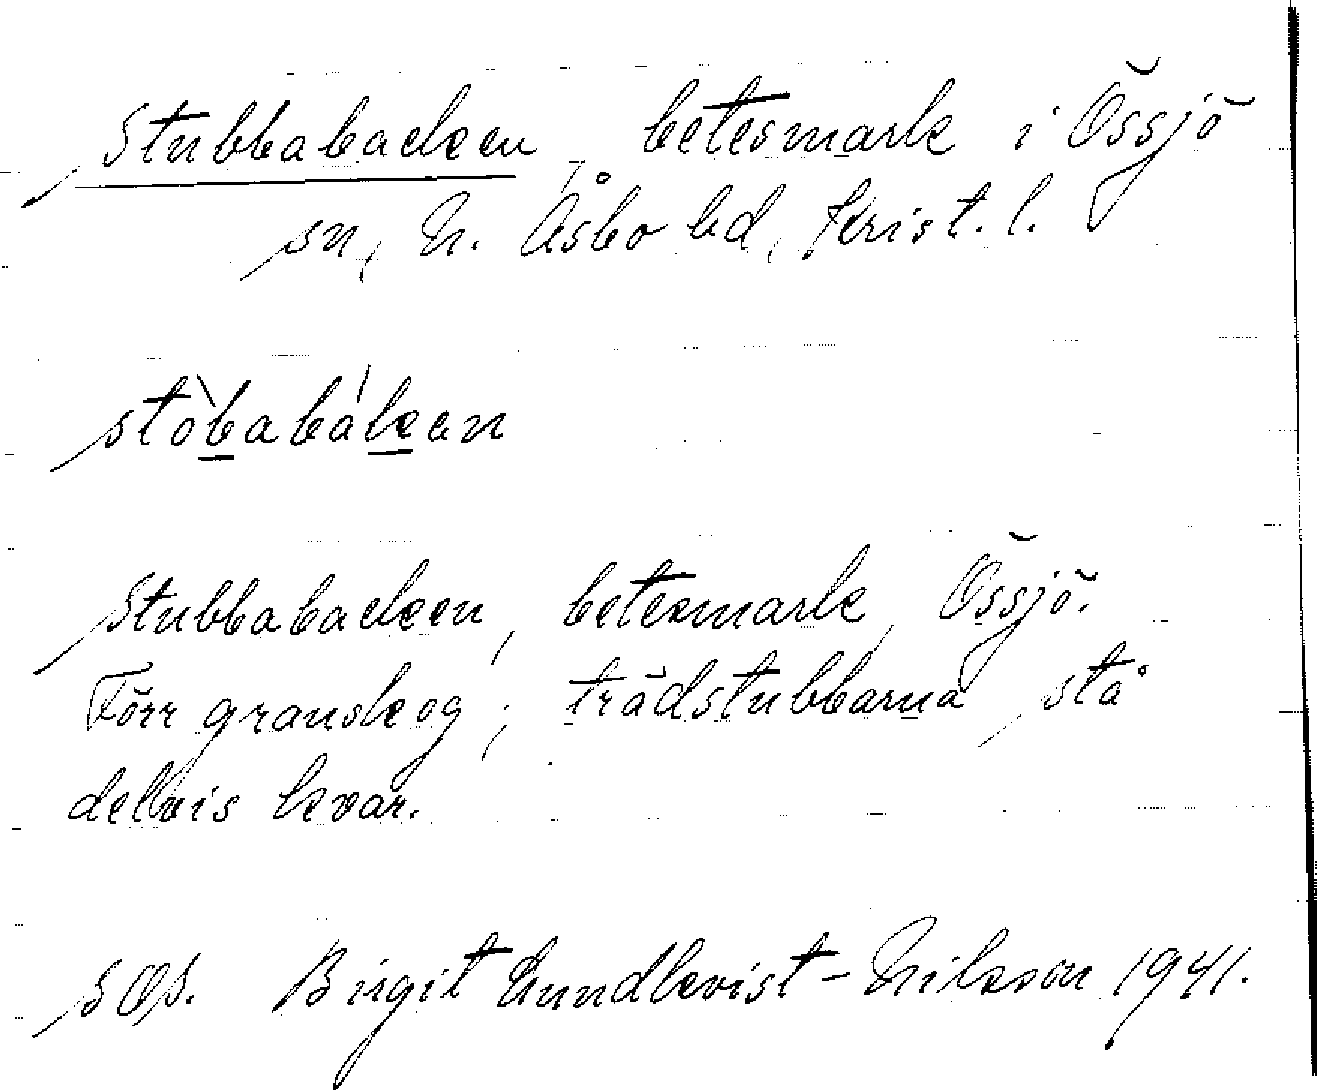 Stubbabacken, betesmark i Össjö
sn, N. Åsbo hd, Krist. l.
stòbabákan
Stubbabacken, betesmark, Össjö.
Förr granskog; trädstubbarna stå
delvis kvar.
Birgit Lundkvist-Nilsson 1941.